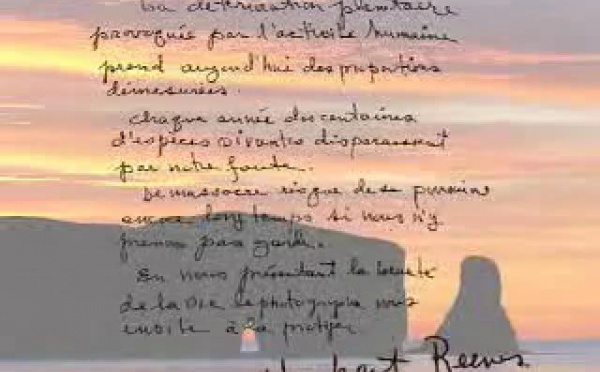 La détérioration planétaire
provoquée par l'activité humaine
prend aujourd'hui des proportions
démesurées.
Chaque année des centaines
d'espèces vivantes disparaissent
par notre faute.
Ce massacre risque de se
encore longtemps si nous n'y
prenons pas garde.
En nous présentant la beauté
de la vie le photographe nous
invite à la protéger
Hubert Reeves